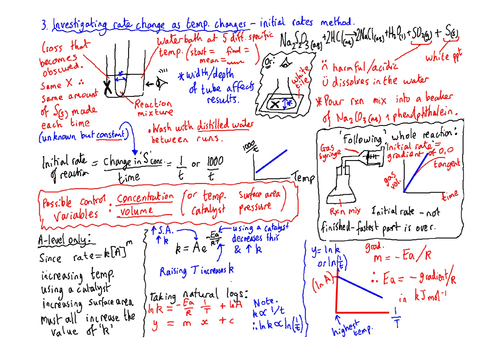 3. Investigating rate change as temp. changes - initial rates method.
Cross that
becomes
obscured.
Same X ∴
same amount
of S(s) made
each time
(unknown but constant)
water bath at 5 diff. specific
temp. (start = final =
mean = )
X
Reaction
mixture
*Width/depth
of tube affects
results.
• Wash with distilled water
between runs.
Or:
X
white
tile
Na2S2O3(aq) + 2HCl(aq) → 2NaCl(aq) + H2O(l) + SO2(g) + S(s)
white ppt
harmful/acidic
dissolves in the water
*Pour rxn mix into a beaker
of Na2CO3(aq) + phenolphthalein.
Initial rate
of reaction = change in S conc. / time = 1/t or 1000/t
1000/t
Temp
Possible control
variables:
Concentration
volume
(or temp. Surface area
Catalyst pressure)
'Following' whole reaction:
Gas
syringe
Rxn mix
'Initial rate' =
gradient at 0,0
tangent
gas
vol.
time
Initial rate - not
finished - fastest part is over.
A-level only:
Since rate = k[A]^m
increasing temp.
using a catalyst
increasing surface area
must all increase the
value of 'k'
↑ S.A.
↑ k
k = Ae^-Ea/RT
using a catalyst
decreases this
& ↑ k
Raising T increases k
Taking natural logs:
ln k = -Ea/R 1/T + ln A
y = m x + c
Note.
k ∝ 1/t
∴ ln k ∝ ln(1/t)
y = ln k
or ln(1/t)
(ln A)
highest
temp.
1/T
grad.
m = -Ea/R
∴ Ea = -gradient/R
in kJmol⁻¹